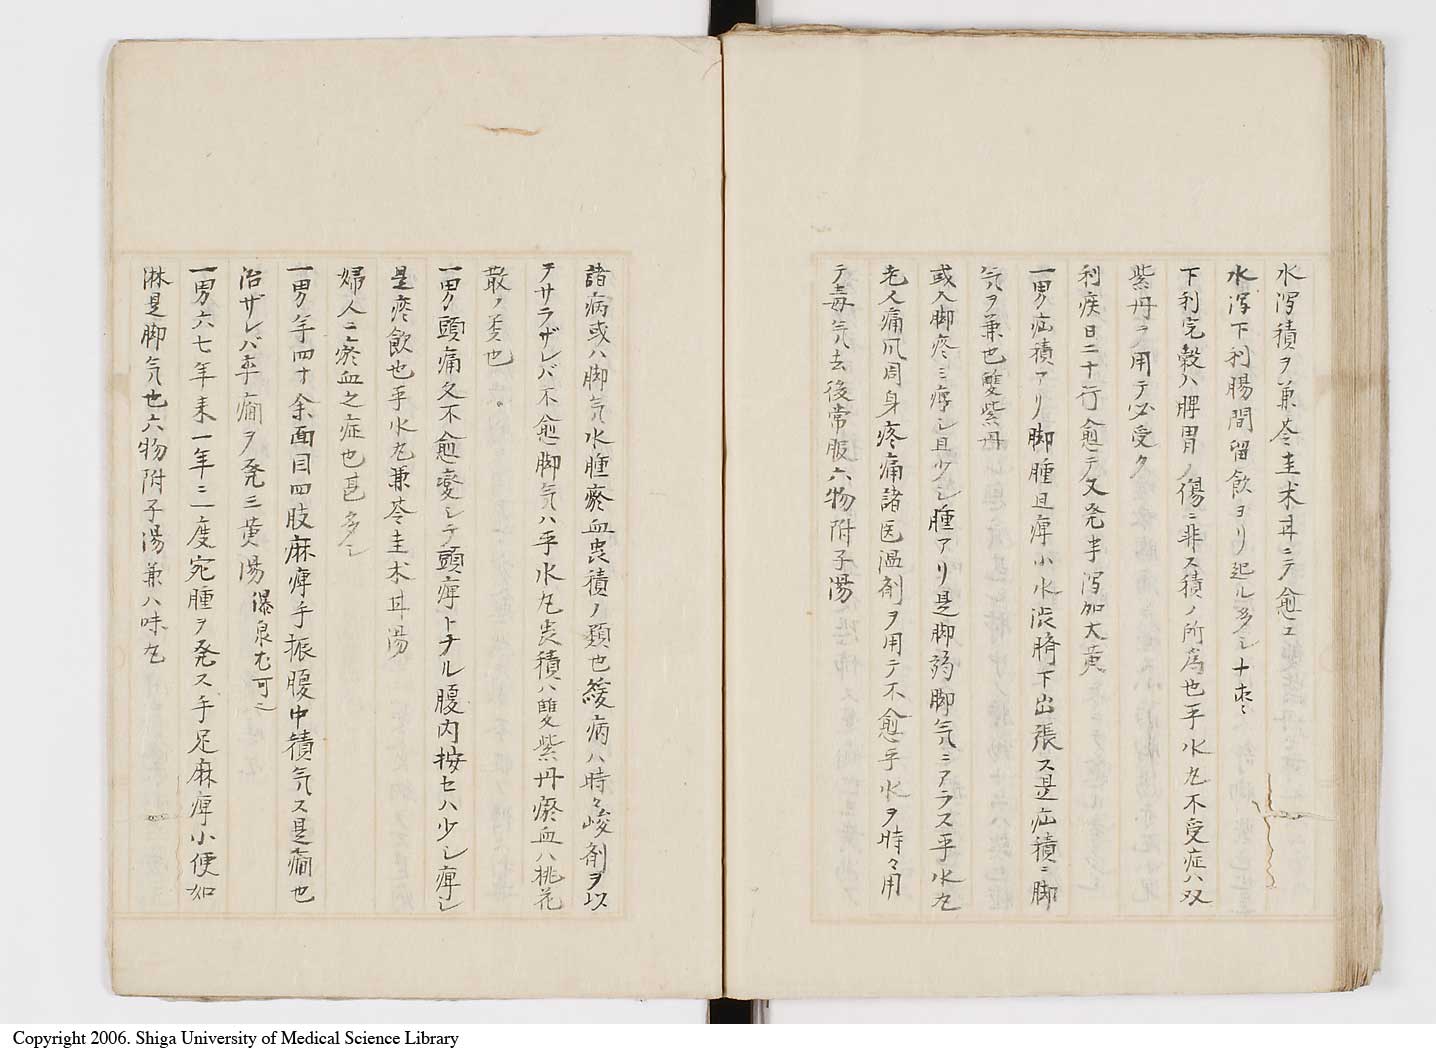 水瀉積ヲ兼苓圭朮草ニテ愈エ
水瀉下利腸間留飲ヨリ起ル多シ十枣
下利完穀ハ脾胃ノ傷ニ非ス積ノ所為也平水丸不受症ハ双
紫丹ヲ用テ必受ク
利疾日二十行愈テ又発半瀉加大黄
一男疝積アリ脚腫且痺小水渋臍下出張ス是疝積ニ脚
気ヲ兼也雙紫丹
或入脚疼ミ痺シ且少シ腫アリ是脚弱脚気ニアラス平水丸
老人痛風周身疼痛諸医温剤ヲ用テ不愈平水ヲ時々用
テ毒気去後常服六物附子湯
諸病或ハ脚気水腫瘀血畜積ノ類也緩病ハ時々峻剤ヲ以
テサラザレバ不愈脚気ハ平水丸畜積ハ雙紫丹瘀血ハ桃花
散ノ類也。
一男頭痛久不愈変シテ頭痺トナル腹内按セハ少シ痺シ
是痰飲也平水丸兼苓圭朮草湯
婦人ニ瘀血之症也甚多シ
一男年四十余面目四肢麻痺手振腹中積気ス是癇也
治ザレバ卒癇ヲ発三黄湯 瀑泉尤可之
一男六七年来一年ニ一度宛腫ヲ発ス手足麻痺小便如
淋是脚気也六物附子湯兼八味丸
Copyright 2006. Shiga University of Medical Science Library